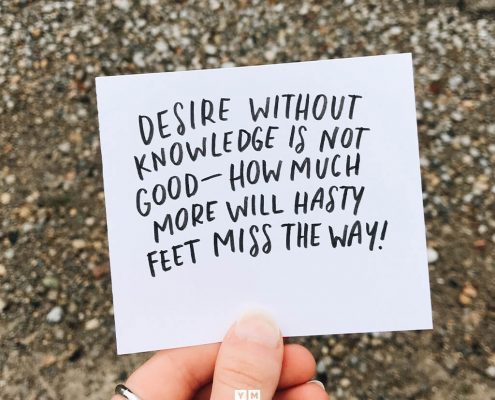 DESIRE WITHOUT
KNOWLEDGE IS NOT
GOOD—HOW MUCH
MORE WILL HASTY
FEET MISS THE WAY!
YM